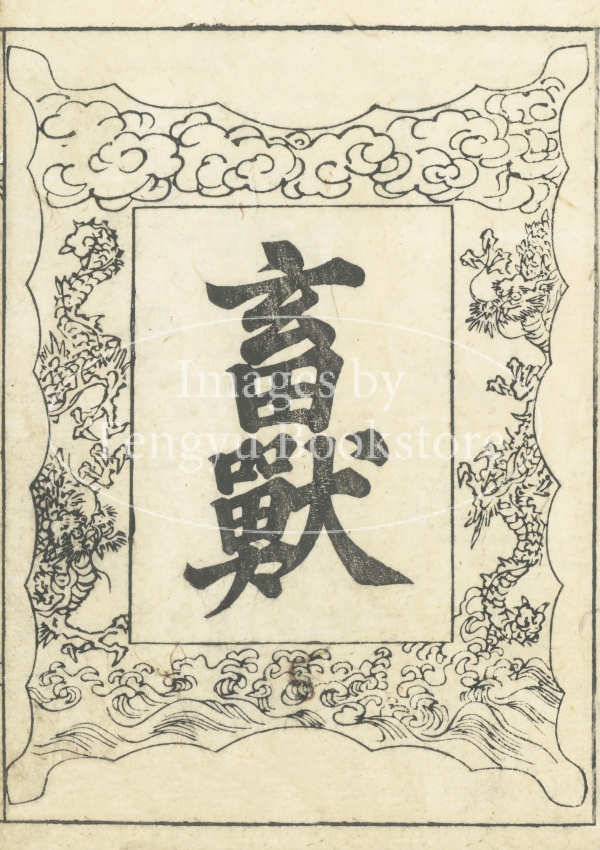 畜獸
Images by
Tengyu Bookstore